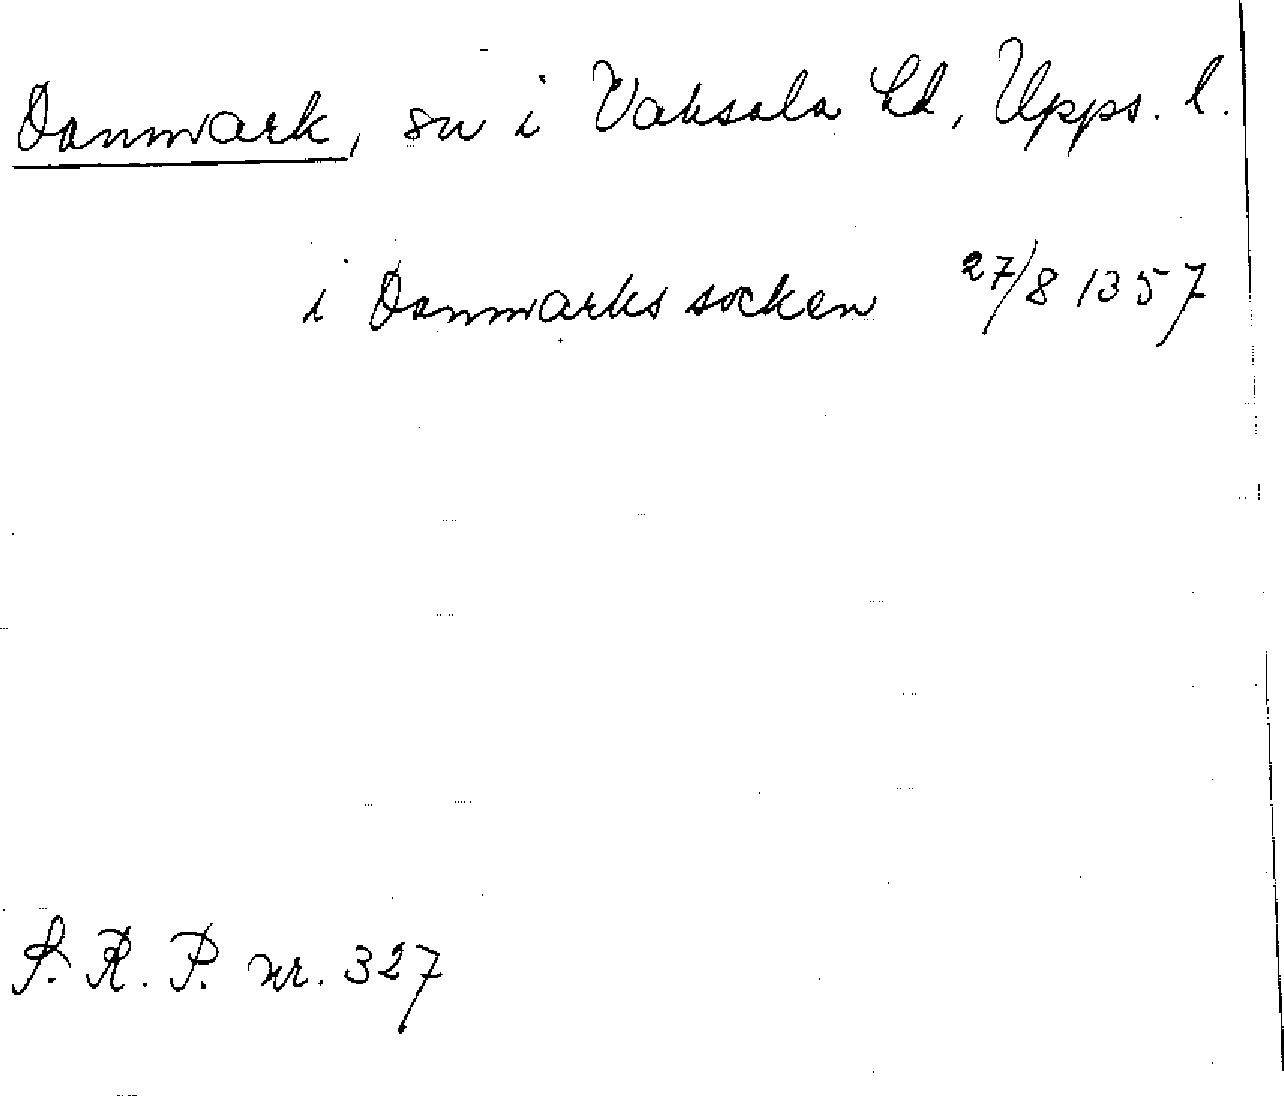 Danmark, sn i Vaksala hd, Upps. l.
i Danmarks socken 27/8 1357
S. R. P. nr. 327